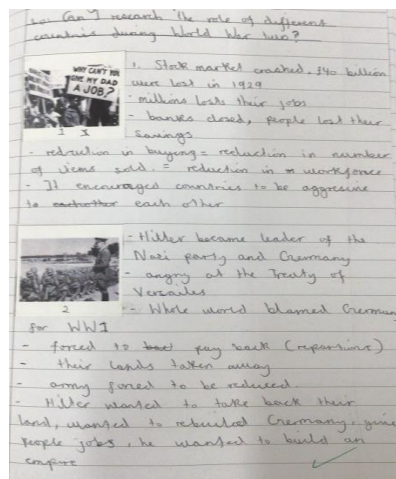 Lo: Can I research the role of different
countries during World War two?
WHY CAN'T YOU
GIVE MY DAD
A JOB?
1. Stock market crashed. $40 billion
were lost in 1929
- millions losts their jobs
- banks closed, people lost their
savings
1
- reduction in buying = reduction in number
of items sold. = reduction in workforce
- It encouraged countries to be aggressive
to eachother each other
- Hitler became leader of the
Nazi party and Germany
- angry at the Treaty of
Versailles
2
- Whole world blamed German
for WW1
- forced to pay back (reparations)
- their lands taken away
- army forced to be reduced.
- Hitler wanted to take back their
land, wanted to rebuild Germany, give
people jobs, he wanted to build an
empire